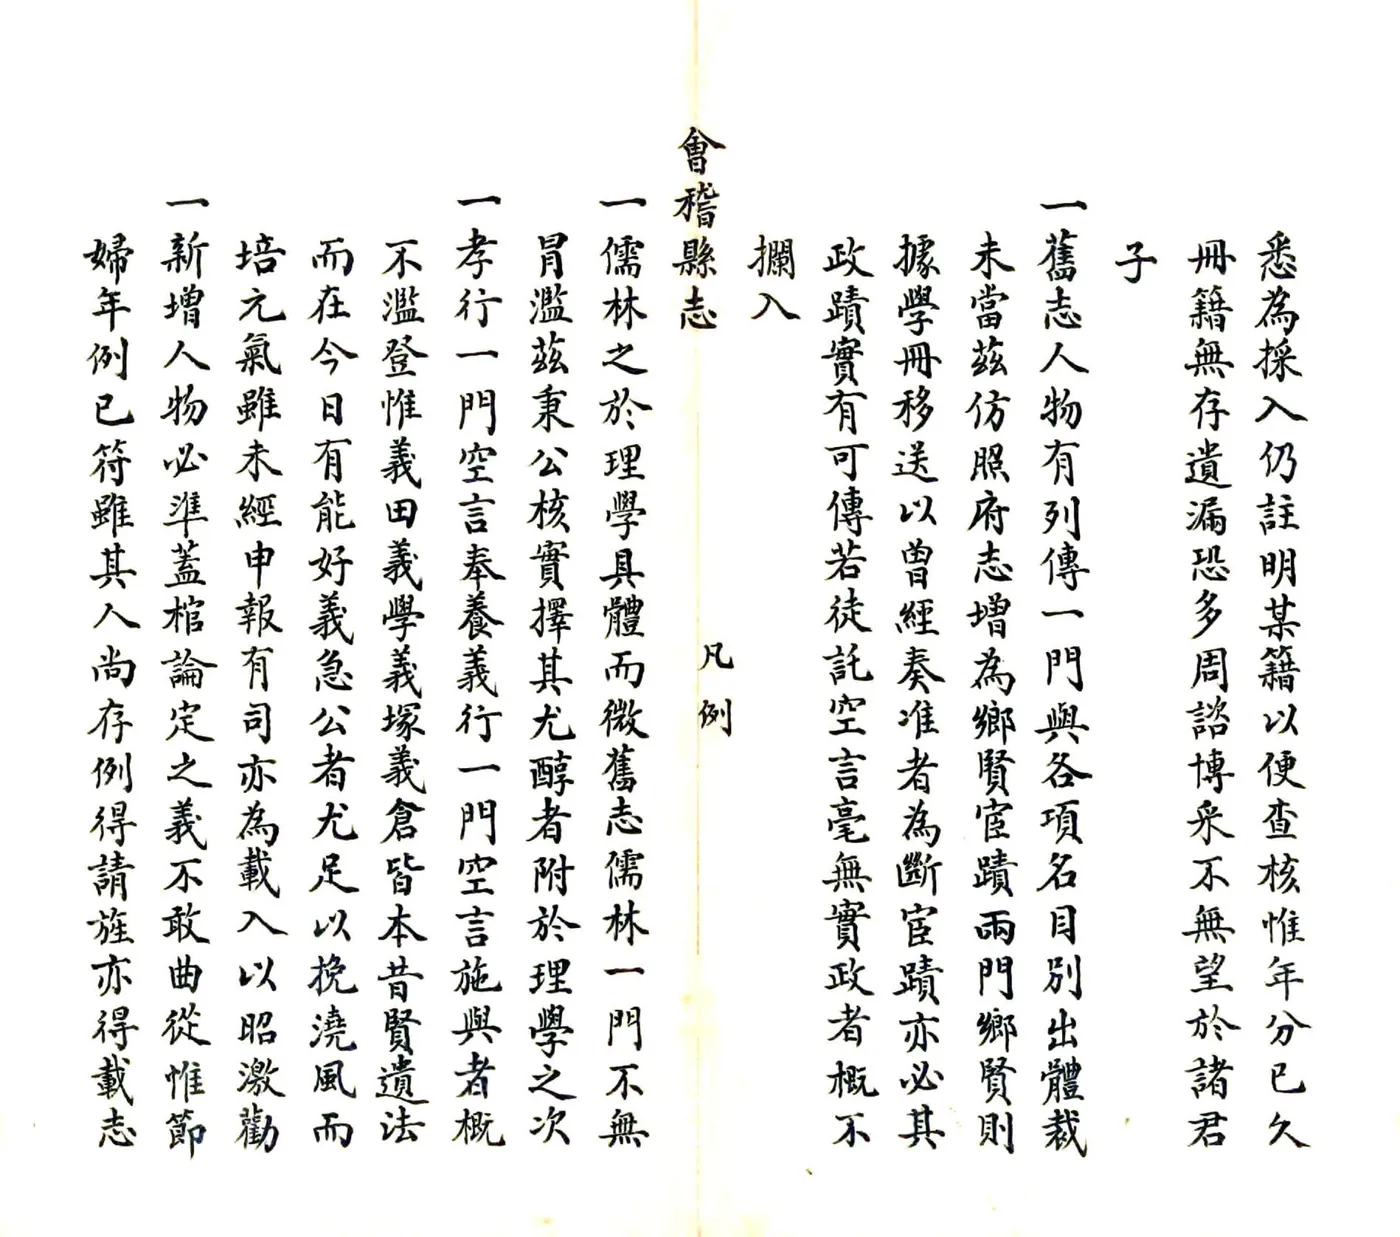 悉為採入仍註明某籍以便查核惟年分已久
冊籍無存遺漏恐多周諮博采不無望於諸君
子
一舊志人物有列傳一門與各項名目別出體裁
未當茲仿照府志增為鄉賢宦蹟兩門鄉賢則
據學冊移送以曾經奏准者為斷宦蹟亦必其
政蹟實有可傳若徒託空言毫無實政者概不
攔入
會稽縣志 凡例
一儒林之於理學具體而微舊志儒林一門不無
冐濫茲秉公核實擇其尤醇者附於理學之次
一孝行一門空言奉養義行一門空言施與者概
不濫登惟義田義學義塚義倉皆本昔賢遺法
而在今日有能好義急公者尤足以挽澆風而
培元氣雖未經申報有司亦為載入以昭激勸
一新增人物必準蓋棺論定之義不敢曲從惟節
婦年例已符雖其人尚存例得請旌亦得載志